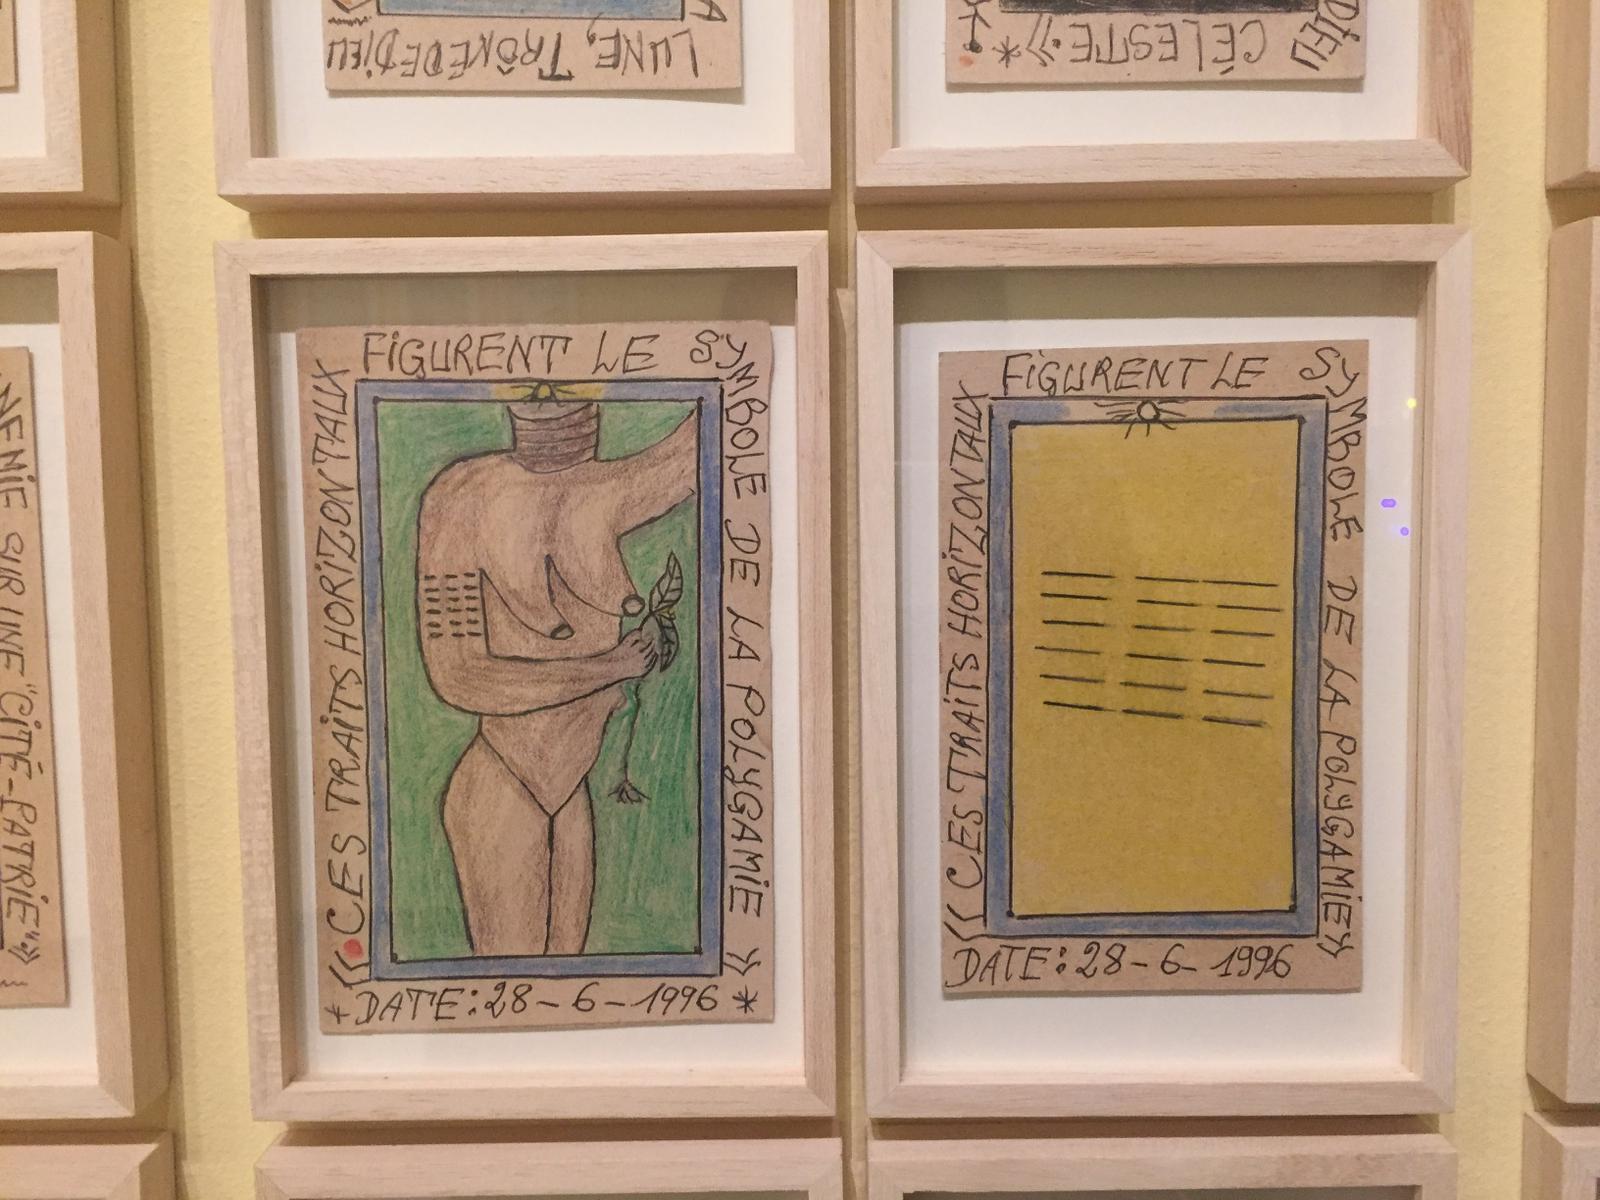 A
LUNE, TRÔNE DE DIEU
DIEU
CÉLESTE.»*
NENIE SUR UNE "CITÉ-PATRIE"»
«CES TRAITS HORIZONTAUX
FIGURENT LE
SYMBOLE DE LA POLYGAMIE»
* DATE: 28-6-1996 *
«CES TRAITS HORIZONTAUX
FIGURENT LE
SYMBOLE DE LA POLYGAMIE»
DATE: 28-6-1996